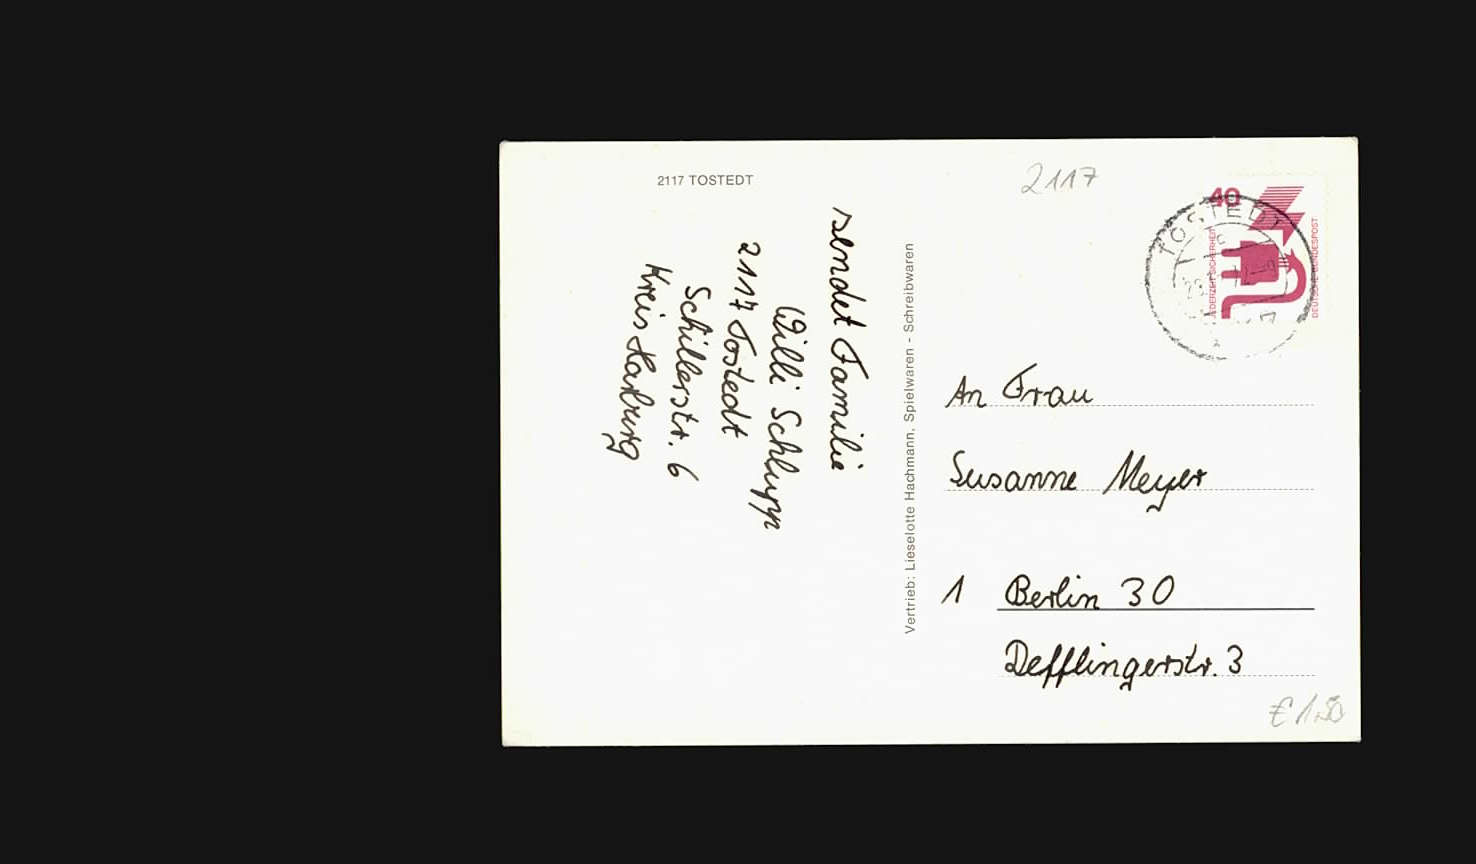 2117 TOSTEDT
sendet Familie
Willi Schlupp
2117 Tostedt
Schillerstr. 6
Kreis Harburg
Vertrieb: Lieselotte Hachmann, Spielwaren - Schreibwaren
2117
40
JEDERZEIT SICHERHEIT
DEUTSCHE BUNDESPOST
TOSTEDT
An Frau
Susanne Meyer
1 Berlin 30
Defflingerstr. 3
€ 1,50